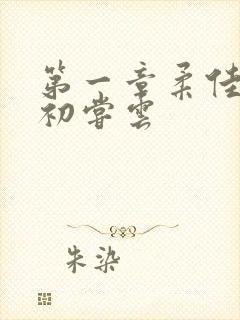 第一章柔佳
初尝雲
朱染